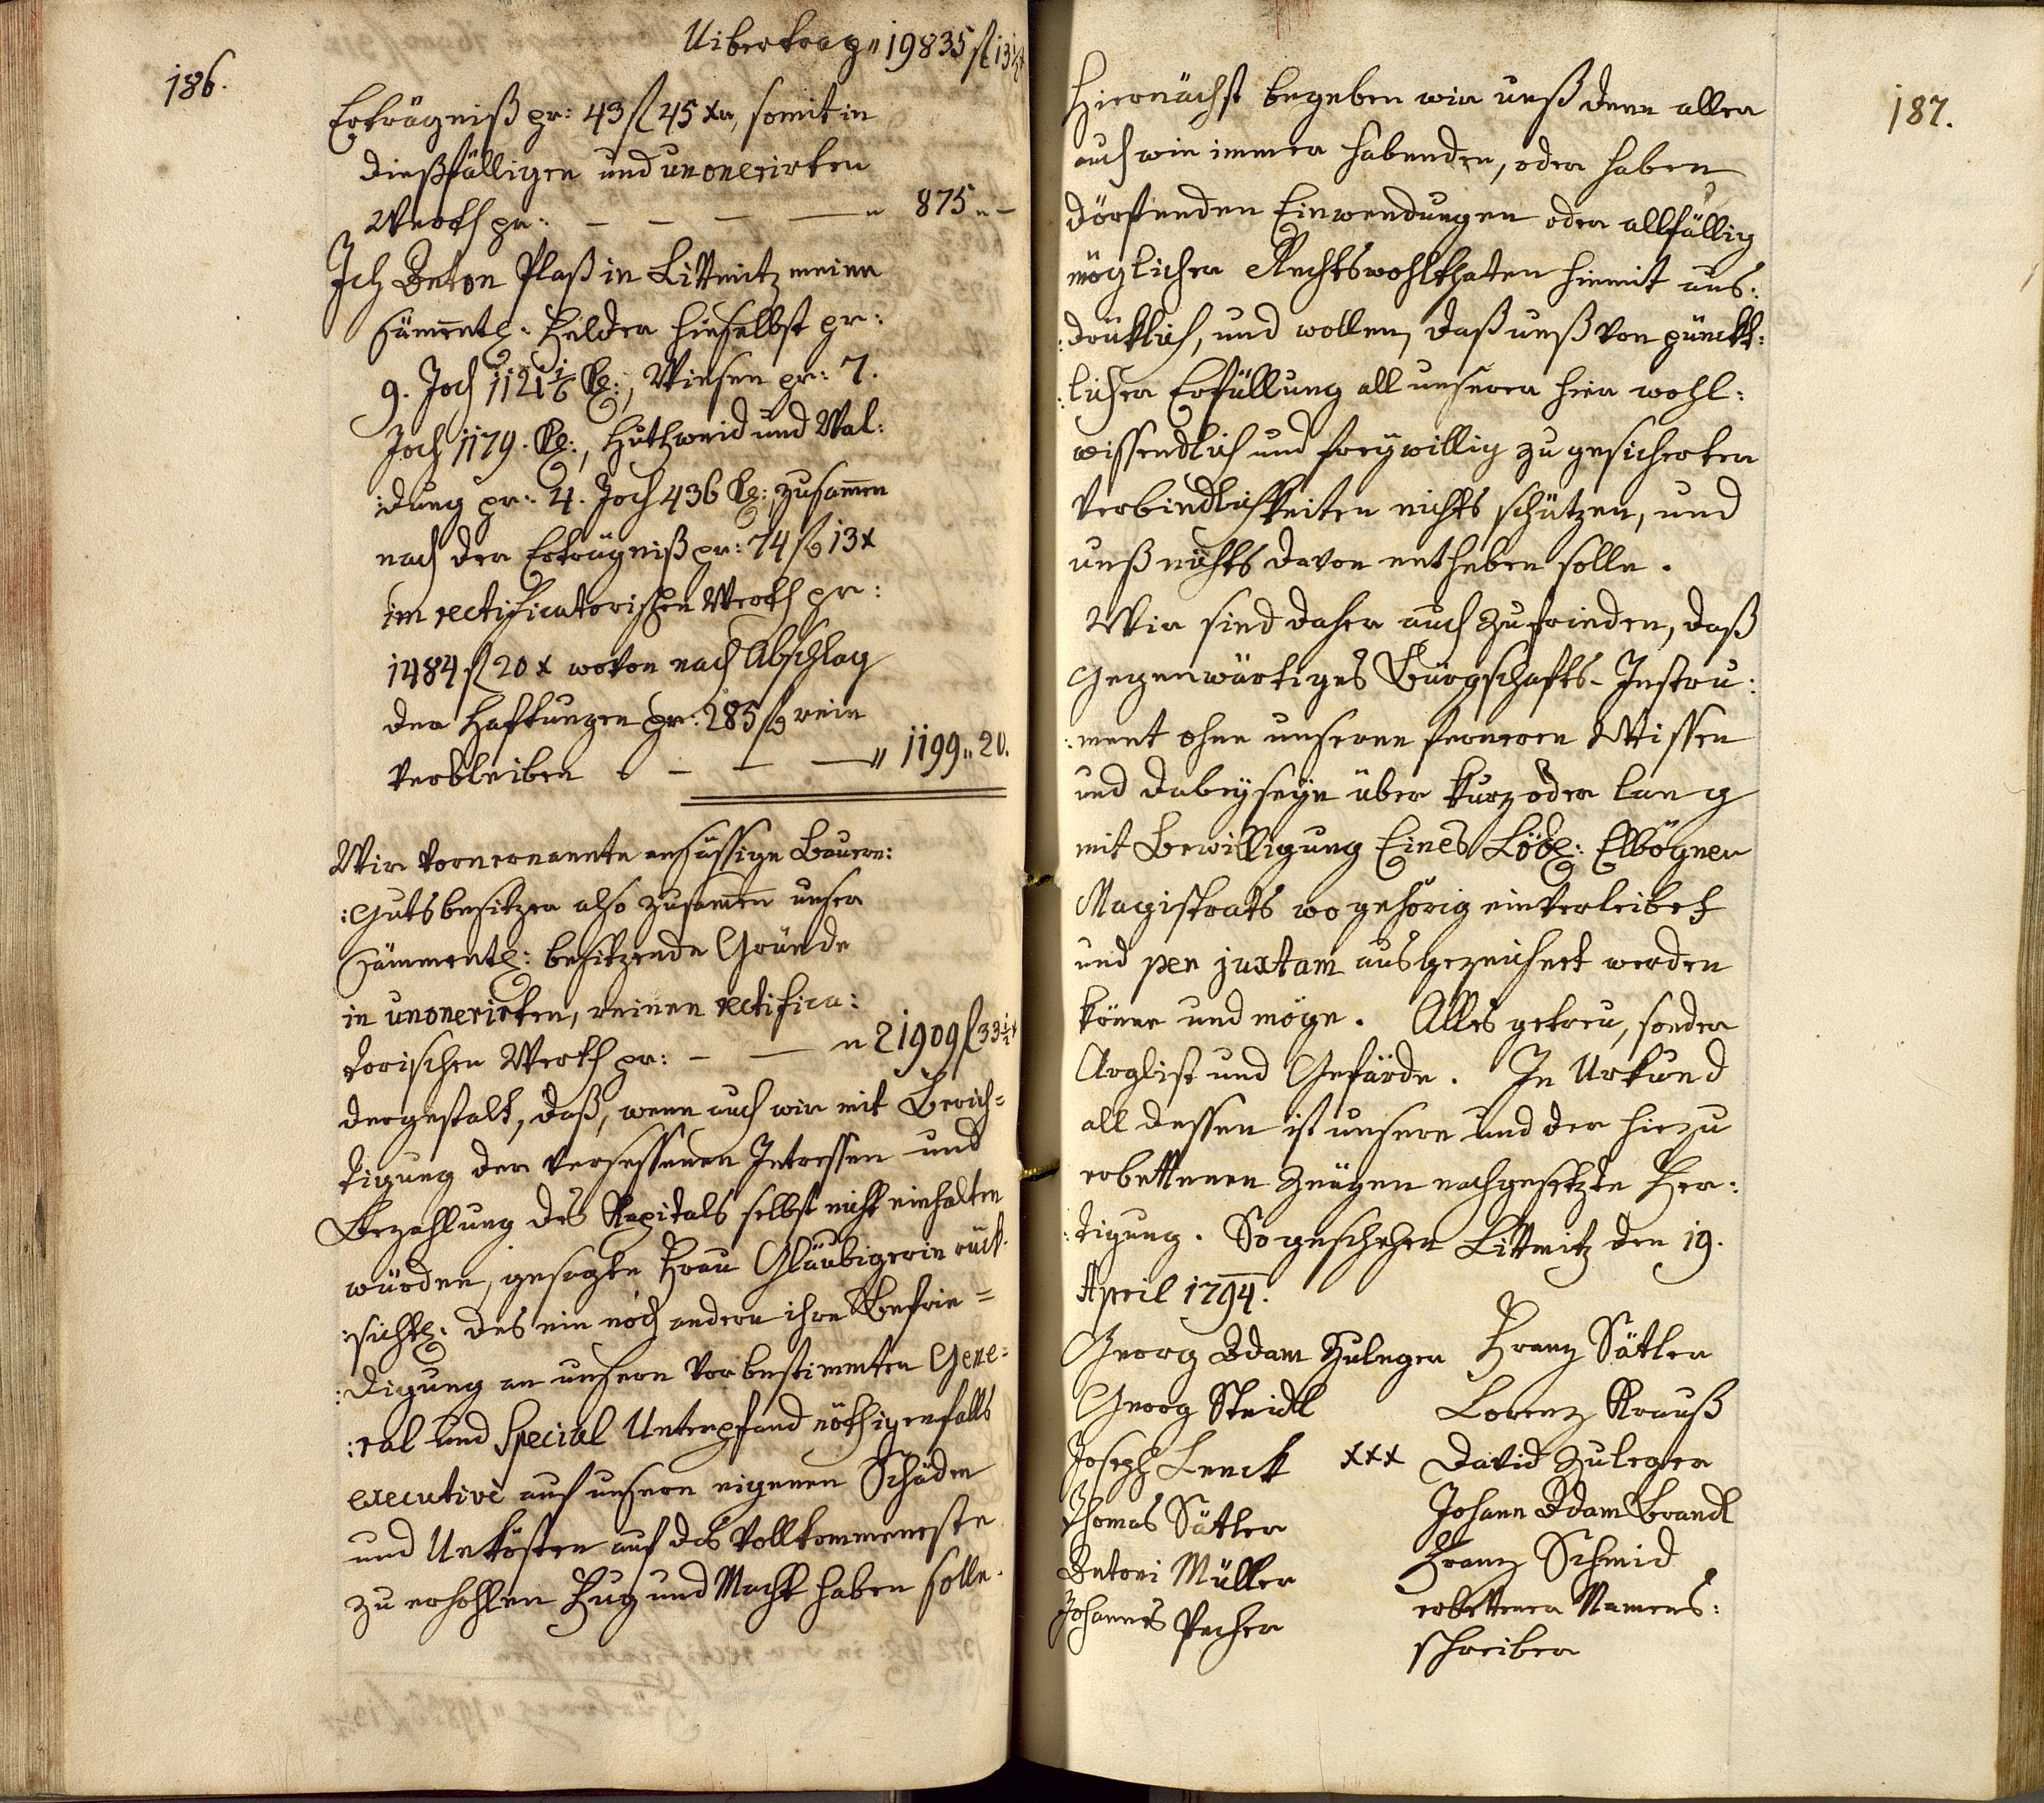 186.
Uibertrag „ 19835 fl 13 1/2 x
Erträgniß pr: 43 fl 45 xr, somit in
dießfälligen und unonerirten
Werth pr: — — — — „ 875 „ —
Ich Anton Plaß in Littmitz meine
sämentl: Felder hieselbst pr:
9. Joch 1121 1/6 Kl:, Wiesen pr: 7.
Joch 1179. Kl:, Huthweid und Wal:
:dung pr: 4. Joch 436 Kl: zusamen
nach der Erträgniß pr: 74 fl 13 x
im rectificatorischen Werth pr:
1484 fl 20 x wovon nach Abschlag
der Haftungen pr: 285 fl rein
verbleiben — — — „ 1199 „ 20.
Wir vornernannte ansässige Bauern:
:Gutsbesitzer also zusamen unser
sämmentl: besitzende Gründe
in unonerirten, reinen rectifica:
torischen Werth pr: — — „ 21909 fl 33 1/2 x
dergestalt, daß, wenn auch wir mit Berich=
tigung der versessenen Intressen und
Bezahlung des Kapitals selbst nicht einhalten
würden, gesagte Frau Gläubigerin rück:
:sichtl: des ein noch andern ihre Befrie=
:digung an unsern vorbestimmten Gene=
:ral und Special Unterpfand nöthigenfalls
executivè auf unsere eigenen Schäden
und Unkösten auf das vollkommeneste
zu erhohlen Fug und Macht haben solle.
187.
Hiernächst begeben wir unß denn aller
auch wie immer habenden, oder haben
dörfenden Einwendungen oder allfällig
möglichen Rechtswohlthaten hiemit aus:
:drüklich, und wollen, daß unß von pünckt:
:licher Erfüllung all unserer hier wohl:
wissendlich und freywillig zugesicherten
Verbindlichkeiten nichts schützen, und
unß nichts davon entheben solle.
Wir sind daher auch zufrieden, daß
gegenwärtiges Bürgschafts-Instru:
:ment ohne unseren ferneren Wissen
und dabeyseyn über kurz oder lang
mit Bewilligung Eines Löbl: Elbögner
Magistrats wo gehörig einverleibet
und per juxtam ausgezeichnet werden
könne und möge. Alles getreu, sonder
Arglist und Gefärde. In Urkund
all dessen ist unsere und der hiezu
erbettenen Zeügen nachgesetzte Fer:
:tigung. So geschehen Littmitz den 19.
April 1794.
Georg Adam Zuleger Franz Sätler
Georg Steidl Lorenz Krauß
Joseph Lenck xxx David Zuleger
Thomas Sätler Johann Adam Brandl
Antoni Müller Franz Schmid
Johannes Pecher erbettener Namens:
schreiber